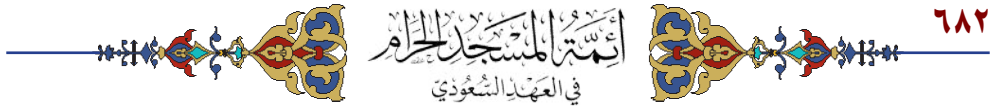 ٦٨٢
أَئِمَّةُ المَسْجِدِ الحَرَامِ
فِي العَهْدِ السُّعُودِيِّ